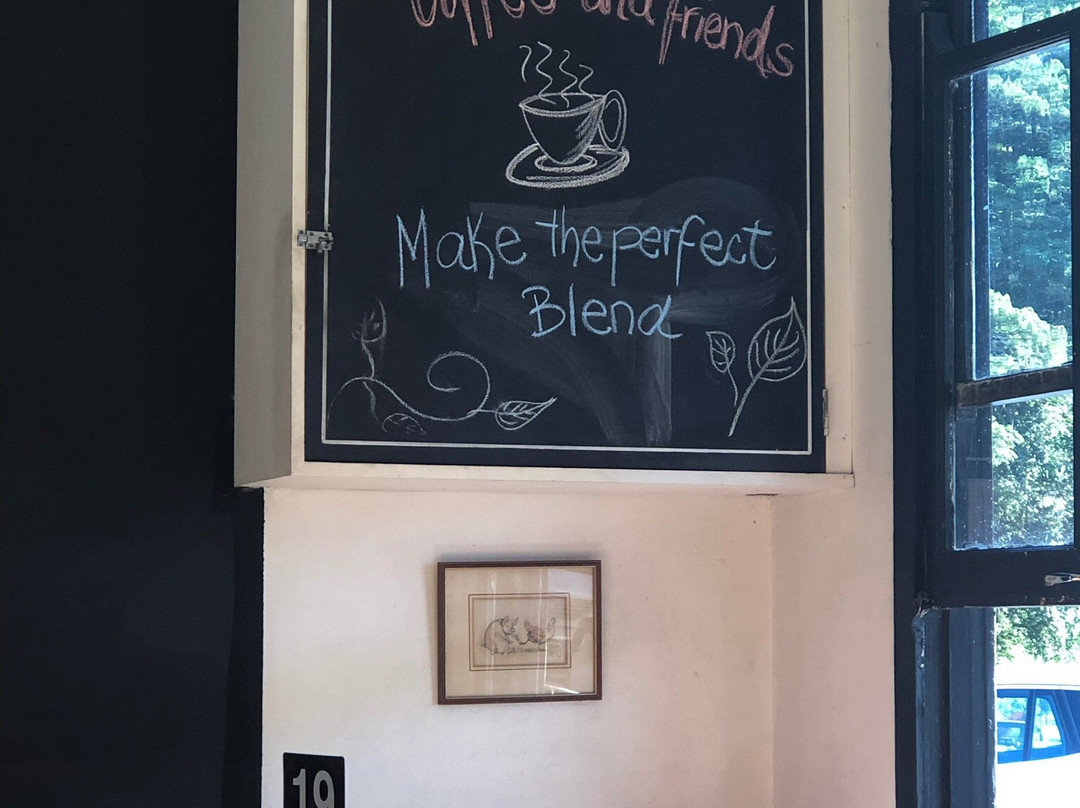 Coffee and friends
Make the perfect
Blend
19